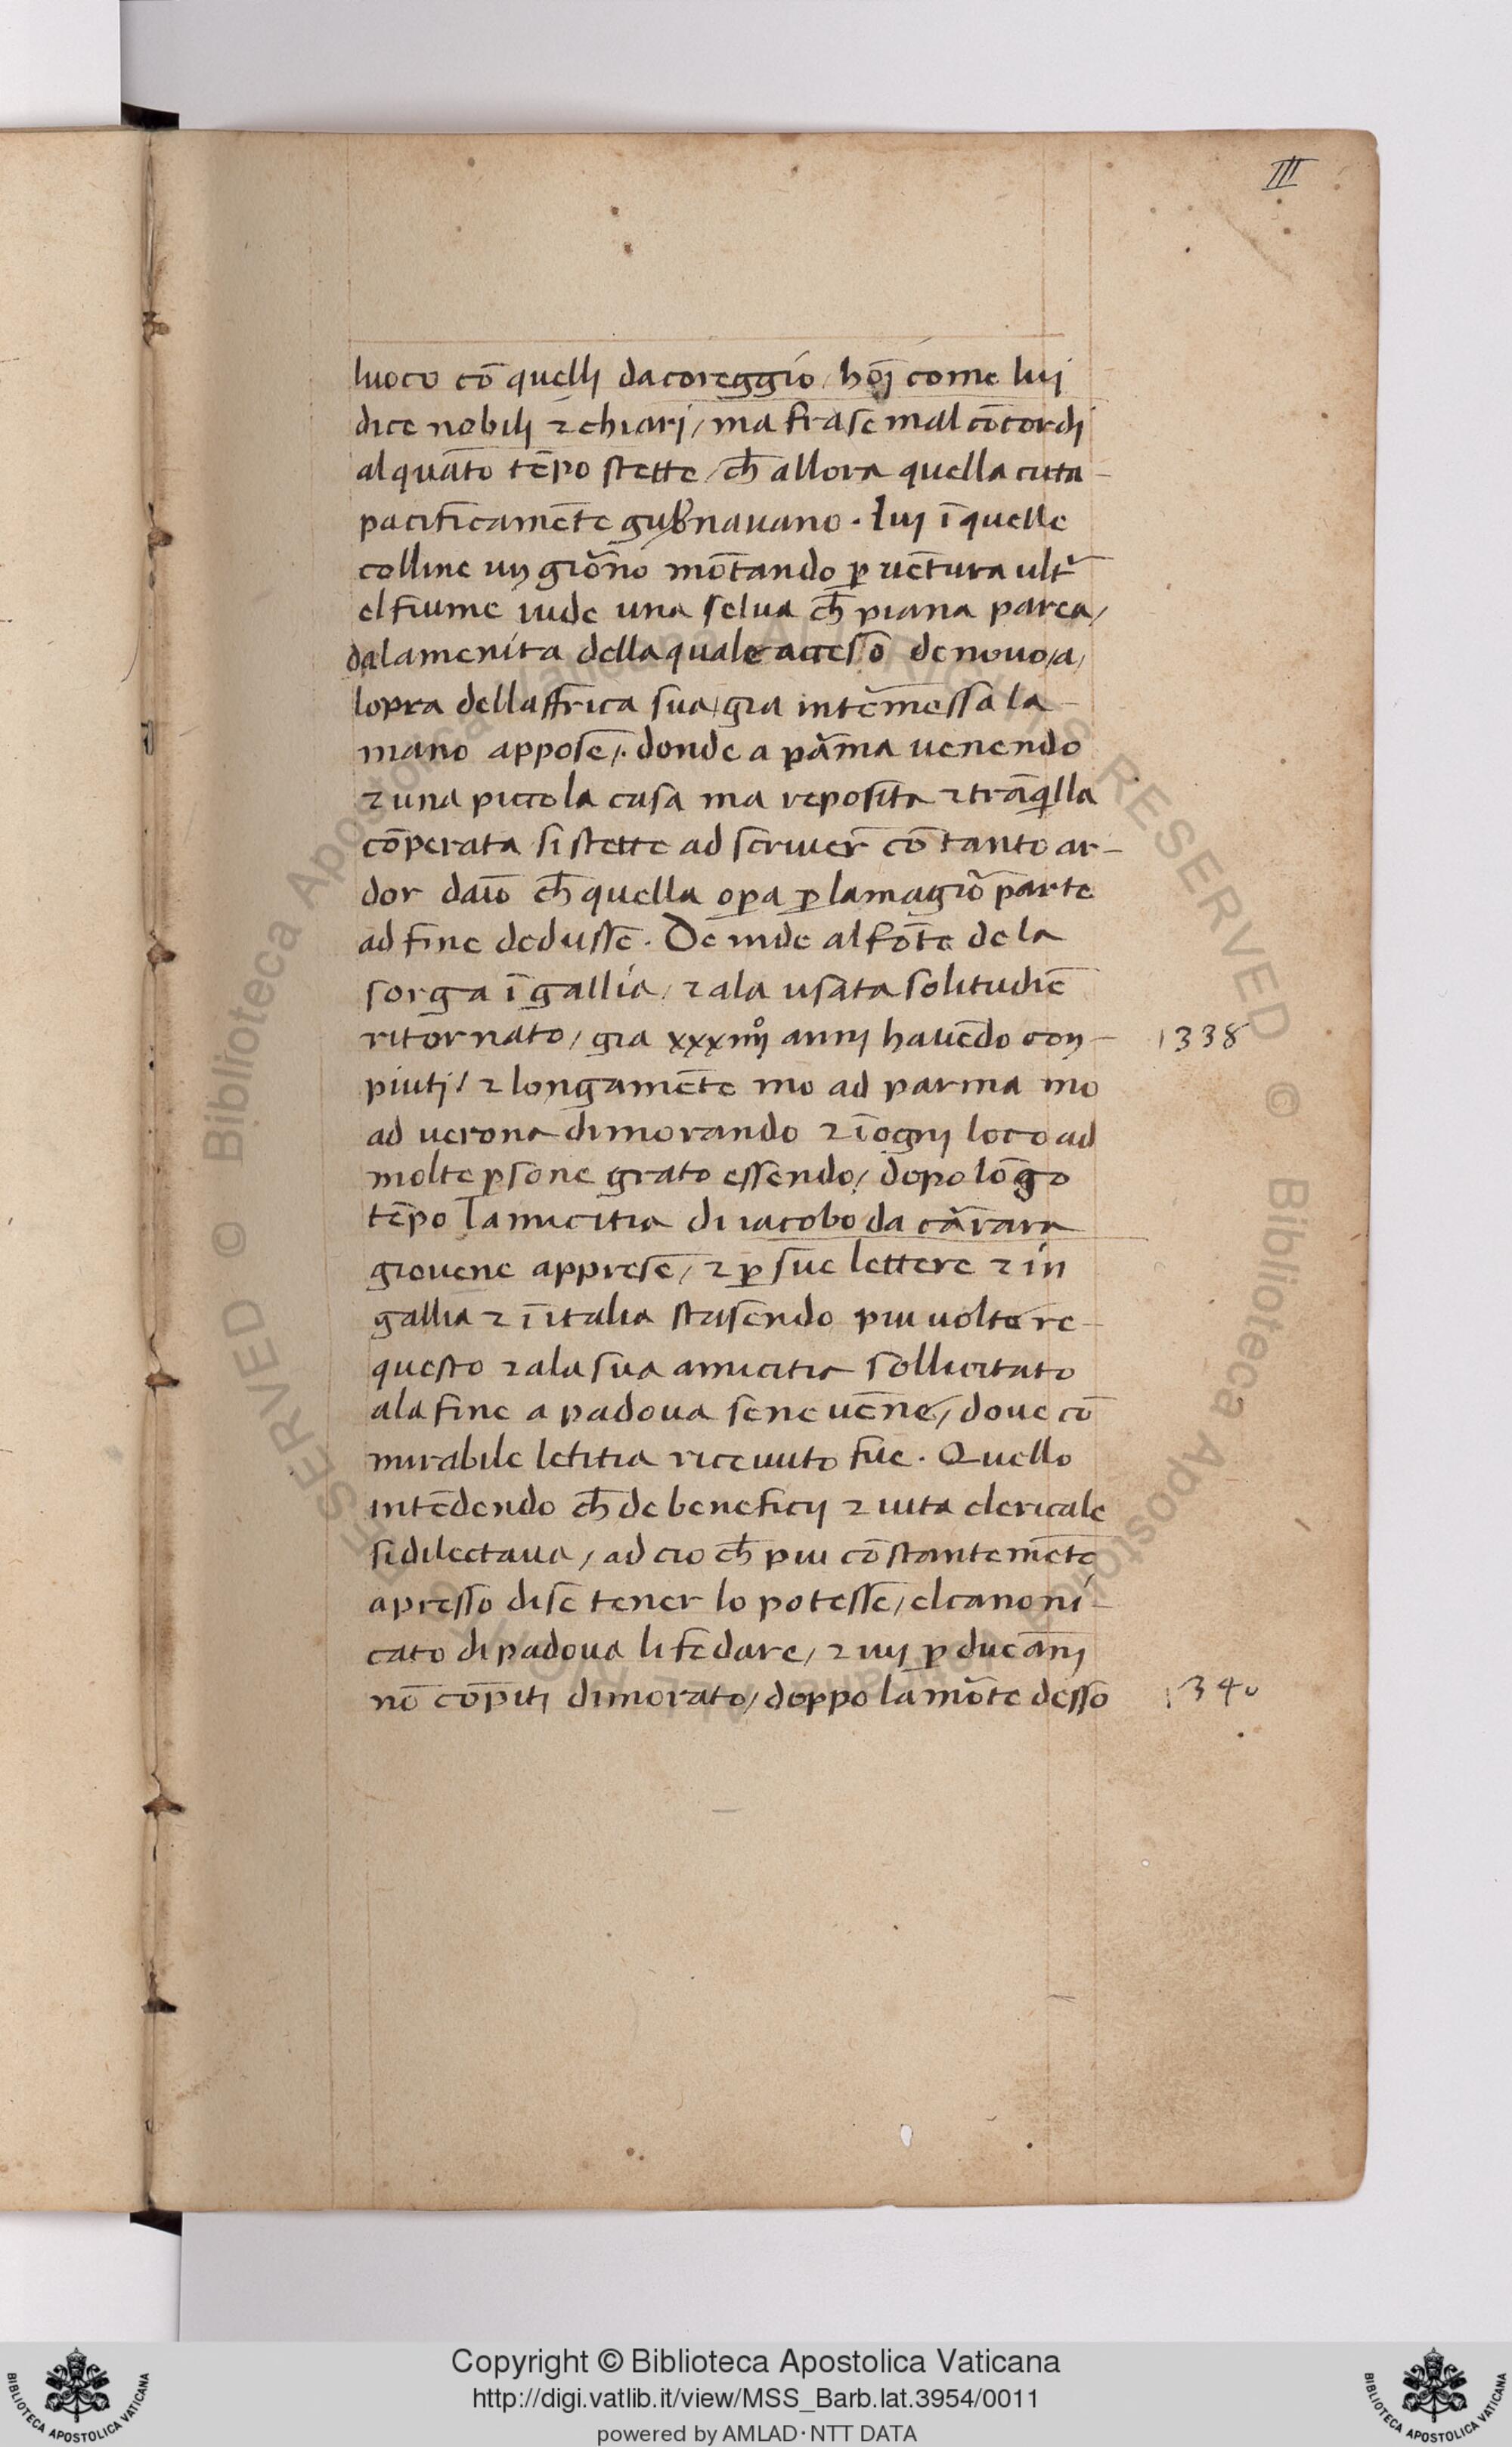 III
luoco cō quellj da coreggio / hoj̄ come luj
dice nobilj ⁊ chiarj / ma fra se mal cōcordj
alquāto tēpo stette / ch̄ allora quella citta -
pacificamēte gub̄nauano . luj ī quelle
colline un giōno mōtando ꝑ uētura ult̄
el fiume uide una selua ch̄ piana parea /
dalamenita della quale acceso de nouo / a /
lopra dellaffrica sua / gia intēmessa la -
mano appose / . donde a pāma uenendo
⁊ una piccola casa ma reposita ⁊ trāq̄lla
cōperata si stette ad scriuer cō tanto ar-
dor daīo ch̄ quella oꝑa ꝑ la magiō parte
ad fine dedusse . De inde al fōte de la
sorga ī gallia / ⁊ ala usata solitudiē
ritornato / gia xxxiiij° annj hauēdo con- 1338
piutj / ⁊ longamēte mo ad parma mo
ad uerona dimorando ⁊ ī ognj loco ad
molte ꝑsone grato essendo / dopo lōgo
tēpo lamicitia di iacobo da cārara
giouene apprese / ⁊ ꝑ sue lettere ⁊ in
gallia ⁊ ī italia stasendo piu uolte re-
questo ⁊ ala sua amicitia sollicitato
ala fine a padoua sene uēne / doue cō
mirabile letitia riceuuto fue . Quello
intēdendo ch̄ de beneficij ⁊ uita clericale
si dilectaua / ad cio ch̄ piu cōstantemēte
apresso di se tener lo potesse / el canoni-
cato di padoua li fe dare / ⁊ iuj ꝑ due ānj
nō cōpitj dimorato / doppo la mōte desso 1340
Copyright © Biblioteca Apostolica Vaticana
http://digi.vatlib.it/view/MSS_Barb.lat.3954/0011
powered by AMLAD·NTT DATA